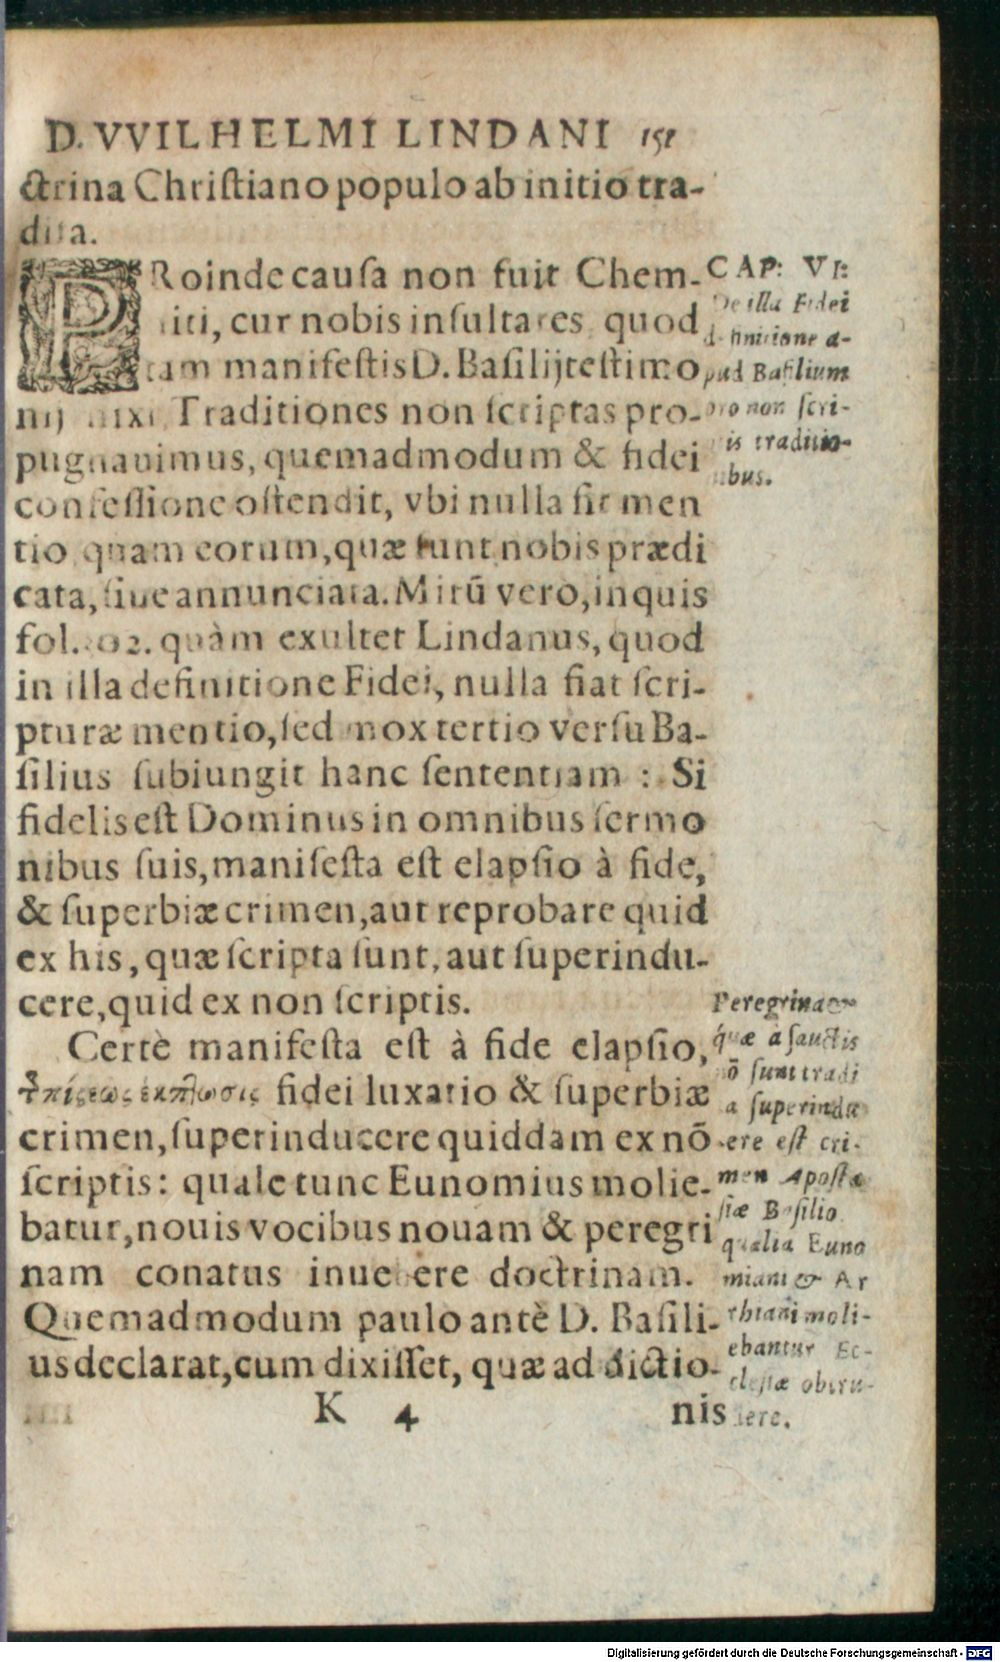 D. VVILHELMI LINDANI 151
ctrina Christiano populo ab initio tra-
dita.
PRoinde causa non fuit Chem-
niti, cur nobis insultares quod
tam manifestis D. Basilij testimo
nij nixi Traditiones non scriptas pro-
pugnauimus, quemadmodum & fidei
confessione ostendit, vbi nulla fit men
tio quam eorum, quæ sunt nobis prædi
cata, siue annunciata. Mirũ vero, inquis
fol. quàm exultet Lindanus, quod
in illa definitione Fidei, nulla fiat scri-
pturæ mentio, sed mox tertio versu Ba-
silius subiungit hanc sententiam : Si
fidelis est Dominus in omnibus sermo
nibus suis, manifesta est elapsio à fide,
& superbiæ crimen, aut reprobare quid
ex his, quæ scripta sunt, aut superindu-
cere, quid ex non scriptis.
Certè manifesta est à fide elapsio,
fidei luxatio & superbiæ
crimen, superinducere quiddam ex nõ
scriptis: quale tunc Eunomius molie-
batur, nouis vocibus nouam & peregri
nam conatus inuehere doctrinam.
Quemadmodum paulo antè D. Basili-
us declarat, cum dixisset, quæ ad dictio-
K 4 nis
CAP: VI:
De illa Fidei
definitione a-
pud Basilium
pro non scri-
ptis traditio-
nibus.
Peregrina
quæ a sanctis
nõ sunt tradi
a superindu
cere est cri-
men Aposta
siæ Basilio
qualia Euno
miani & Ar
rhiani moli-
ebantur Ec-
clesiæ obtru-
dere.
Digitalisierung gefördert durch die Deutsche Forschungsgemeinschaft - DFG